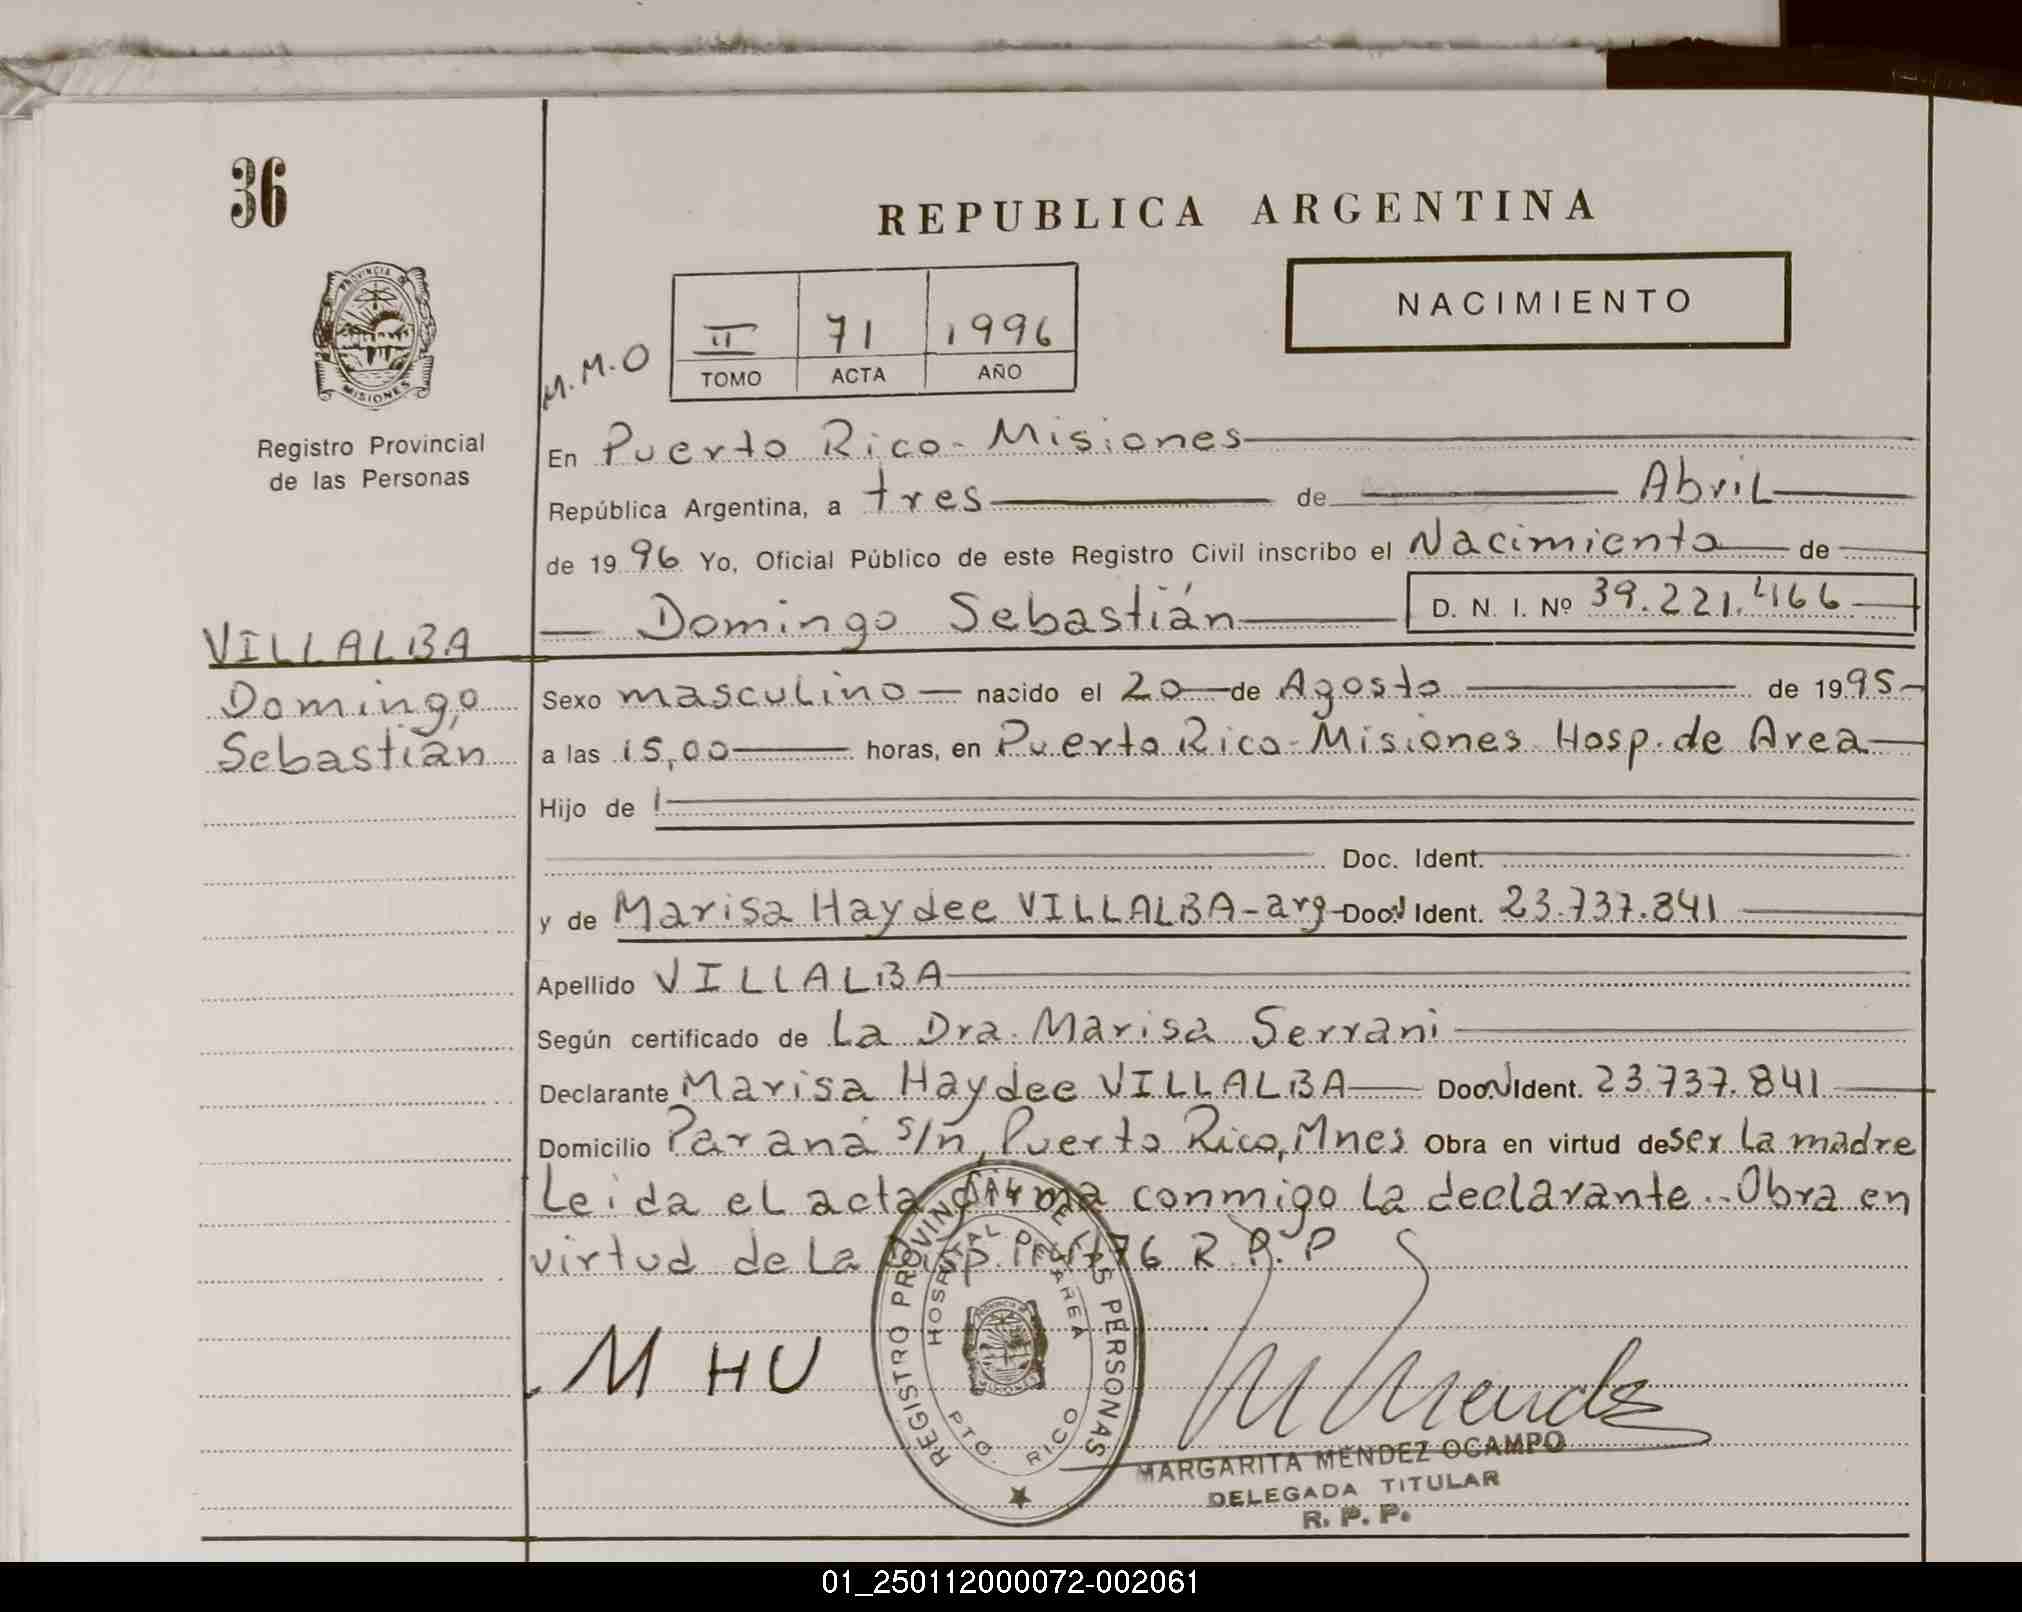 36
REPUBLICA ARGENTINA
NACIMIENTO
PROVINCIA DE
MISIONES
Registro Provincial
de las Personas
M.M.O
II 71 1996
TOMO ACTA AÑO
En Puerto Rico - Misiones
República Argentina, a tres de Abril
de 1996 Yo, Oficial Público de este Registro Civil inscribo el Nacimiento de
Domingo Sebastián D. N. I. Nº 39.221.466
VILLALBA
Domingo
Sebastián
Sexo masculino nacido el 20 de Agosto de 1995
a las 15,00 horas, en Puerto Rico - Misiones Hosp. de Area
Hijo de
Doc. Ident.
y de Marisa Haydee VILLALBA - arg - Doc. Ident. 23.737.841
Apellido VILLALBA
Según certificado de La Dra. Marisa Serrani
Declarante Marisa Haydee VILLALBA Doc. Ident. 23.737.841
Domicilio Paraná s/n, Puerto Rico, Mnes Obra en virtud de ser la madre
Leida el acta firma conmigo la declarante.. Obra en
virtud de la Disp. R. P. P
M HU
REGISTRO PROVINCIAL DE LAS PERSONAS
HOSPITAL DE AREA
PTO. RICO
M Mendez
MARGARITA MENDEZ OCAMPO
DELEGADA TITULAR
R. P. P.
01_250112000072-002061